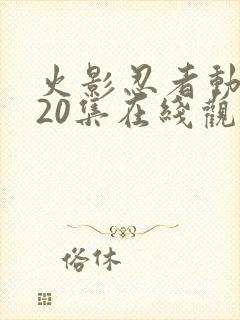 火影忍者動
20集在綫觀
俗休